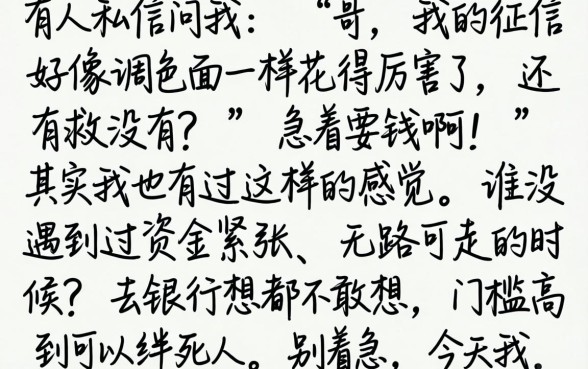 有人私信问我：“哥，我的征信
好像调色面一样花得厉害了，还
有救没有？”急着要钱啊！”
其实我也有过这样的感觉。谁没
遇到过资金紧张、无路可走的时
候？去银行想都不敢想，门槛高
到可以绊死人。别着急，今天我.